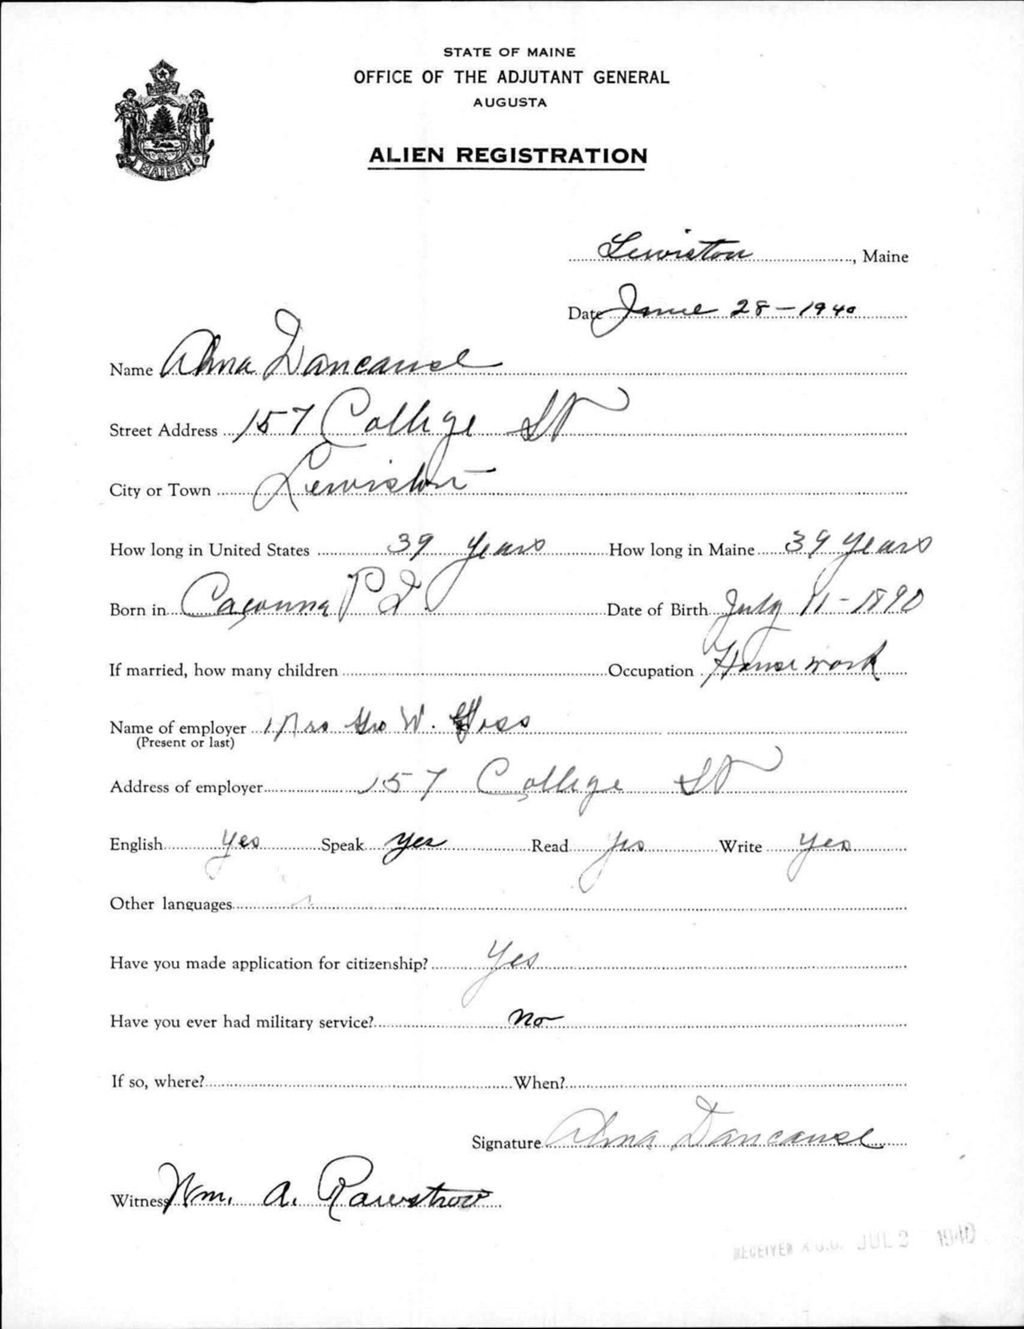 STATE OF MAINE
OFFICE OF THE ADJUTANT GENERAL
AUGUSTA
ALIEN REGISTRATION
MAINE
Lewiston, Maine
Date June 28-1940
Name Alma Dancause
Street Address 157 College St
City or Town Lewiston
How long in United States 39 years How long in Maine 39 years
Born in Cacouna P Q. Date of Birth July 11-1890
If married, how many children Occupation Housework
Name of employer Mrs Geo W. Goss
(Present or last)
Address of employer 157 College St
English Yes Speak Yes Read Yes Write Yes
Other languages
Have you made application for citizenship? Yes
Have you ever had military service? No
If so, where? When?
Signature Alma Dancause
Witness Wm. A. Rawstron
RECEIVED JUL 2 1940